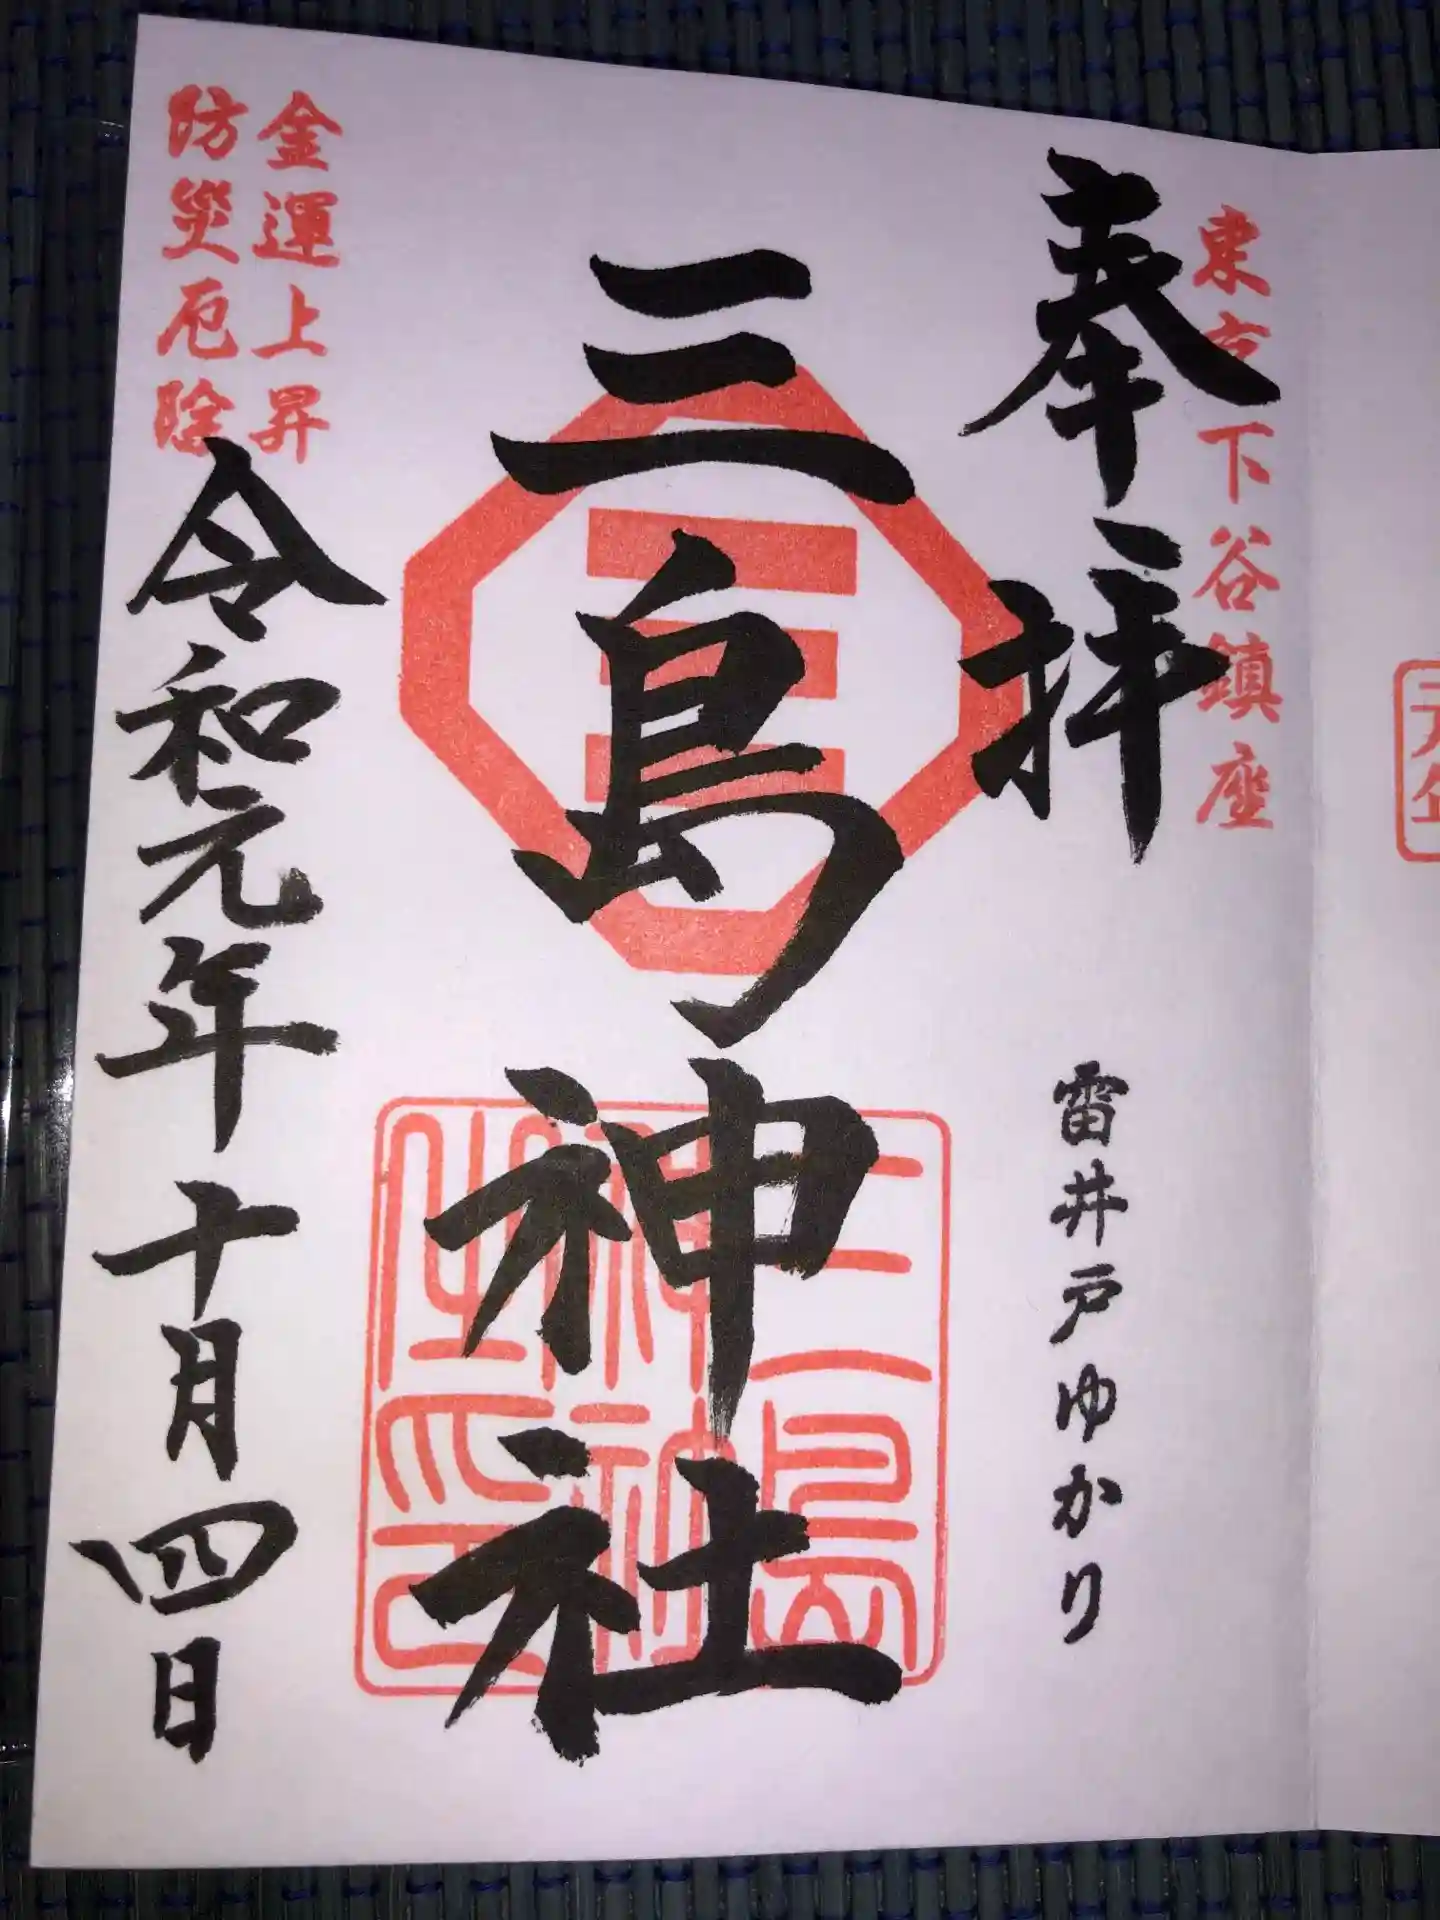 東京下谷鎮座
奉拝
雷井戸ゆかり
三島神社
三島
神社
之印
金運上昇
防災厄除
令和元年十月四日